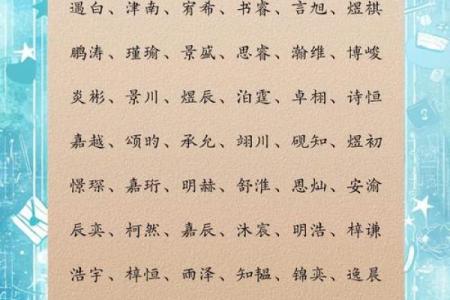 遇白、津南、宥希、书睿、言旭、煜祺
鹏涛、瑾瑜、景盛、思睿、瀚维、博峻
炎彬、景川、煜辰、泊霆、卓栩、诗恒
嘉越、颂昀、承允、翊川、砚知、煜初
憬琛、嘉珩、明赫、舒淮、恩灿、安渝
辰奕、柯然、嘉辰、沐宸、明浩、梓谦
浩宇、梓恒、雨泽、知韫、锦奕、逸晨